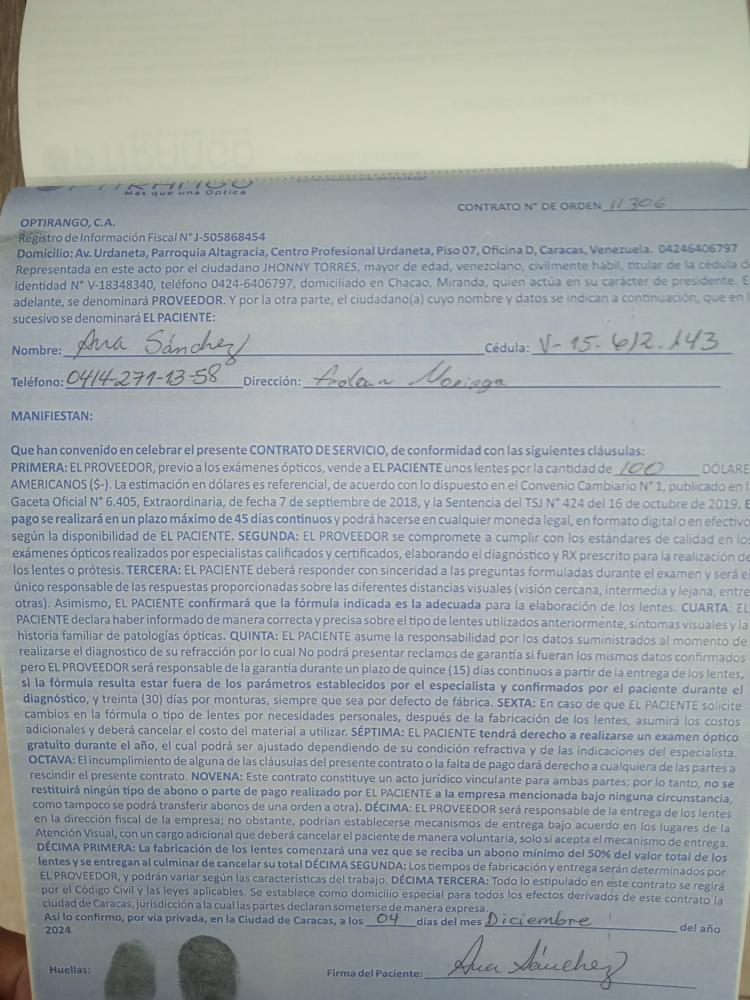 Más que una Óptica
CONTRATO N° DE ORDEN 11306
OPTIRANGO, C.A.
Registro de Información Fiscal N° J-505868454
Domicilio: Av. Urdaneta, Parroquia Altagracia, Centro Profesional Urdaneta, Piso 07, Oficina D, Caracas, Venezuela. 04246406797
Representada en este acto por el ciudadano JHONNY TORRES, mayor de edad, venezolano, civilmente hábil, titular de la cédula d
identidad N° V-18348340, teléfono 0424-6406797, domiciliado en Chacao, Miranda, quien actúa en su carácter de presidente. E
adelante, se denominará PROVEEDOR. Y por la otra parte, el ciudadano(a) cuyo nombre y datos se indican a continuación, que en l
sucesivo se denominará EL PACIENTE:
Nombre: Ana Sánchez Cédula: V-15.612.143
Teléfono: 0414-271-13-58 Dirección:
MANIFIESTAN:
Que han convenido en celebrar el presente CONTRATO DE SERVICIO, de conformidad con las siguientes cláusulas:
PRIMERA: EL PROVEEDOR, previo a los exámenes ópticos, vende a EL PACIENTE unos lentes por la cantidad de 100 DÓLARE
AMERICANOS ($-). La estimación en dólares es referencial, de acuerdo con lo dispuesto en el Convenio Cambiario N° 1, publicado en l
Gaceta Oficial N° 6.405, Extraordinaria, de fecha 7 de septiembre de 2018, y la Sentencia del TSJ N° 424 del 16 de octubre de 2019. E
pago se realizará en un plazo máximo de 45 días continuos y podrá hacerse en cualquier moneda legal, en formato digital o en efectivo
según la disponibilidad de EL PACIENTE. SEGUNDA: EL PROVEEDOR se compromete a cumplir con los estándares de calidad en lo
exámenes ópticos realizados por especialistas calificados y certificados, elaborando el diagnóstico y RX prescrito para la realización de
los lentes o prótesis. TERCERA: EL PACIENTE deberá responder con sinceridad a las preguntas formuladas durante el examen y será el
único responsable de las respuestas proporcionadas sobre las diferentes distancias visuales (visión cercana, intermedia y lejana, entre
otras). Asimismo, EL PACIENTE confirmará que la fórmula indicada es la adecuada para la elaboración de los lentes. CUARTA: EL
PACIENTE declara haber informado de manera correcta y precisa sobre el tipo de lentes utilizados anteriormente, síntomas visuales y la
historia familiar de patologías ópticas. QUINTA: EL PACIENTE asume la responsabilidad por los datos suministrados al momento de
realizarse el diagnostico de su refracción por lo cual No podrá presentar reclamos de garantía si fueran los mismos datos confirmados
pero EL PROVEEDOR será responsable de la garantía durante un plazo de quince (15) días continuos a partir de la entrega de los lentes,
si la fórmula resulta estar fuera de los parámetros establecidos por el especialista y confirmados por el paciente durante el
diagnóstico, y treinta (30) días por monturas, siempre que sea por defecto de fábrica. SEXTA: En caso de que EL PACIENTE solicite
cambios en la fórmula o tipo de lentes por necesidades personales, después de la fabricación de los lentes, asumirá los costos
adicionales y deberá cancelar el costo del material a utilizar. SÉPTIMA: EL PACIENTE tendrá derecho a realizarse un examen óptico
gratuito durante el año, el cual podrá ser ajustado dependiendo de su condición refractiva y de las indicaciones del especialista.
OCTAVA: El incumplimiento de alguna de las cláusulas del presente contrato o la falta de pago dará derecho a cualquiera de las partes a
rescindir el presente contrato. NOVENA: Este contrato constituye un acto jurídico vinculante para ambas partes; por lo tanto, no se
restituirá ningún tipo de abono o parte de pago realizado por EL PACIENTE a la empresa mencionada bajo ninguna circunstancia,
como tampoco se podrá transferir abonos de una orden a otra). DÉCIMA: EL PROVEEDOR será responsable de la entrega de los lentes
en la dirección fiscal de la empresa; no obstante, podrían establecerse mecanismos de entrega bajo acuerdo en los lugares de la
Atención Visual, con un cargo adicional que deberá cancelar el paciente de manera voluntaria, solo si acepta el mecanismo de entrega.
DÉCIMA PRIMERA: La fabricación de los lentes comenzará una vez que se reciba un abono mínimo del 50% del valor total de los
lentes y se entregan al culminar de cancelar su total DÉCIMA SEGUNDA: Los tiempos de fabricación y entrega serán determinados por
EL PROVEEDOR, y podrán variar según las características del trabajo. DÉCIMA TERCERA: Todo lo estipulado en este contrato se regirá
por el Código Civil y las leyes aplicables. Se establece como domicilio especial para todos los efectos derivados de este contrato la
ciudad de Caracas, jurisdicción a la cual las partes declaran someterse de manera expresa.
Así lo confirmo, por vía privada, en la Ciudad de Caracas, a los 04 días del mes Diciembre del año
2024
Huellas: Firma del Paciente: Ana Sánchez